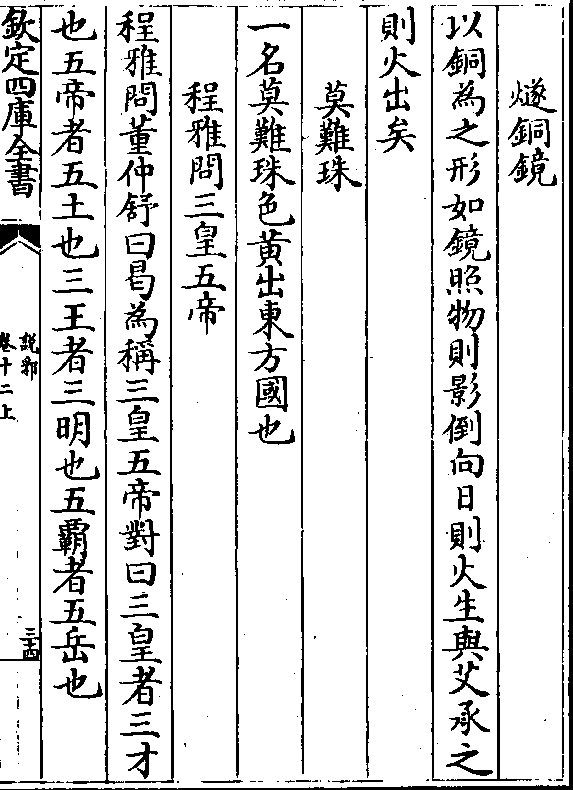 燧銅鏡
以銅為之形如鏡照物則影倒向日則火生與艾承之
則火出矣
莫難珠
一名莫難珠色黃出東方國也
程雅問三皇五帝
程雅問董仲舒曰曷為稱三皇五帝對曰三皇者三才
也五帝者五土也三王者三明也五霸者五岳也
欽定四庫全書
說郛
卷十二上
三四